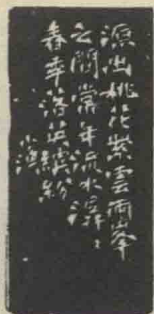 源出桃花紫雲兩峯
之間常年流水潺〻
春季落英繽紛